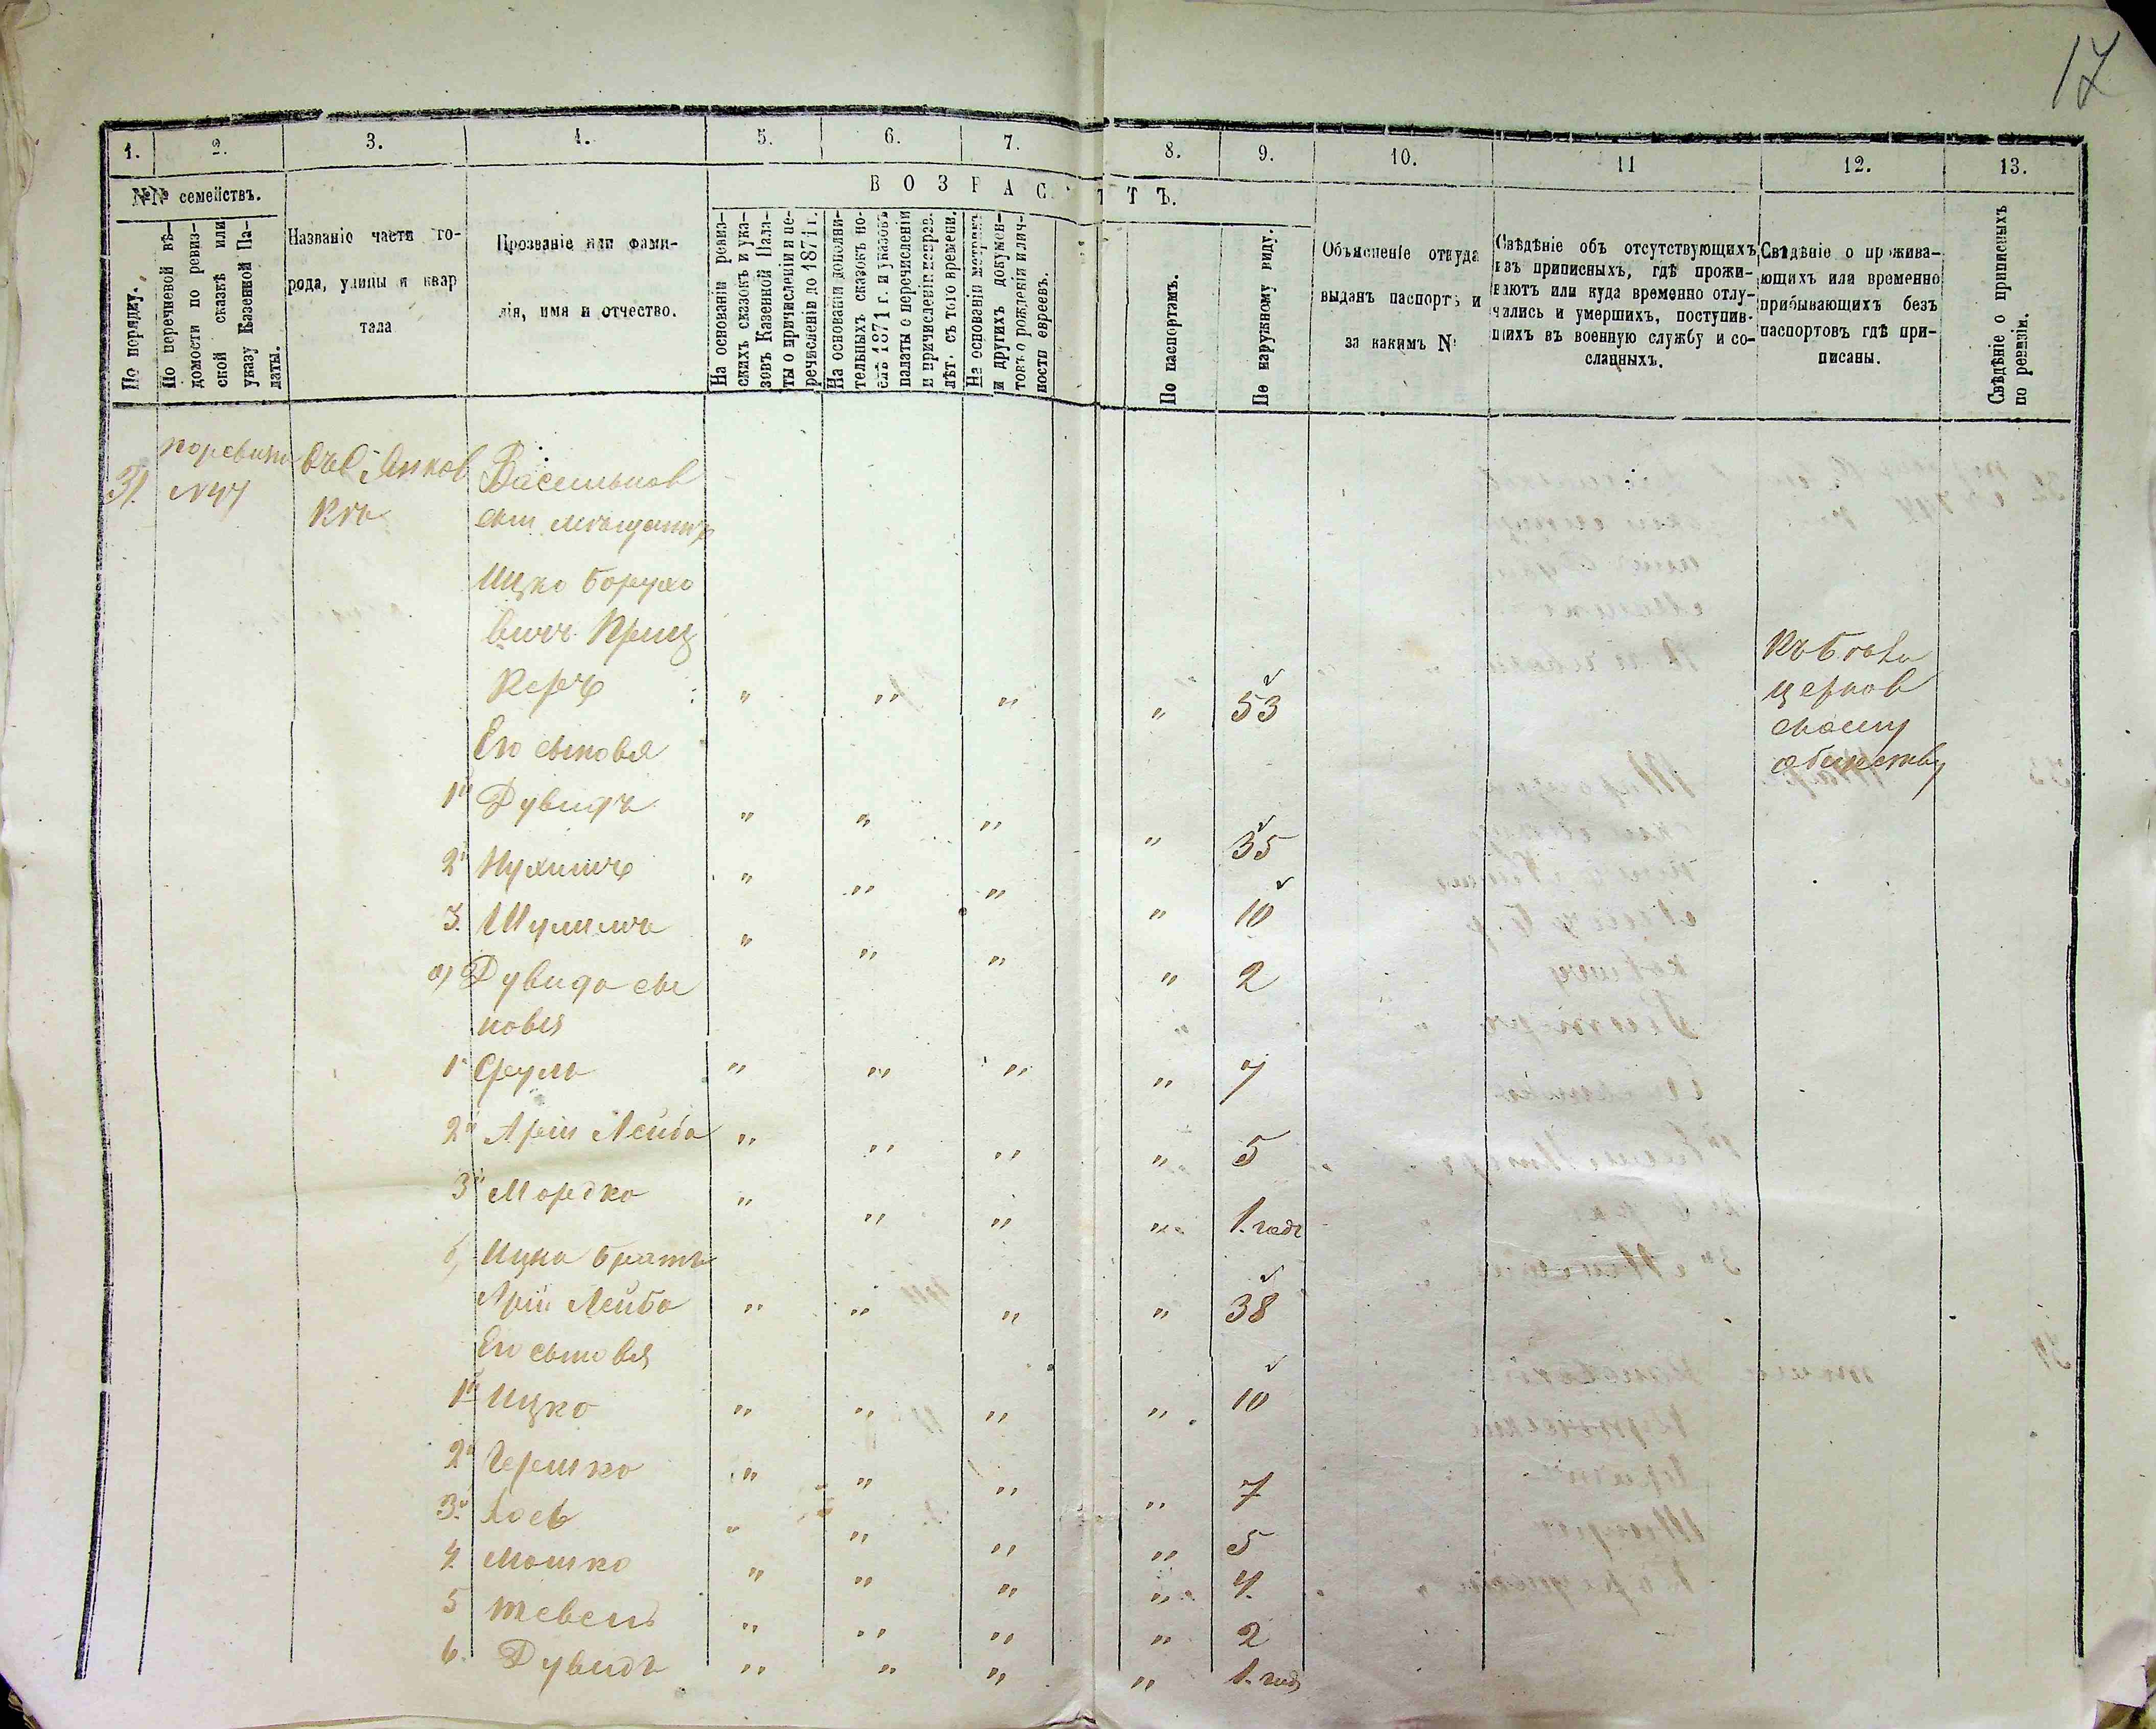 17
1. 2. 3. 4. 5. 6. 7. 8. 9. 10. 11 12. 13.
№№ семействъ.
В О З Р А С Т Ъ.
По порядку.
По перечневой вѣ-
домости по ревиз-
ской сказкѣ или
указу Казенной Па-
латы.
Названіе части го-
рода, улицы и квар
тала
Прозваніе или фами-
лія, имя и отчество.
На основаніи ревиз-
скихъ сказокъ и ука-
зовъ Казенной Пала-
ты о причисленіи и пе-
речисленіи до 1871 г.
На основаніи дополни-
тельныхъ сказокъ по-
слѣ 1871 г. и указовъ
палаты о перечисленіи
и причисленіи неправ.
лѣт. съ того времени.
На основаніи метрикъ
и другихъ докумен-
товъ о рожденіи и лич-
ности евреевъ.
По паспортамъ.
По наружному виду.
Объясненіе откуда
выданъ паспортъ и
за какимъ №
Свѣдѣніе объ отсутствующихъ
изъ приписныхъ, гдѣ прожи-
ваютъ или куда временно отлу-
чились и умершихъ, поступив-
шихъ въ военную службу и со-
сланныхъ.
Свѣдѣніе о прожива-
ющихъ или временно
прибывающихъ безъ
паспортовъ гдѣ при-
писаны.
Свѣдѣніе о приписныхъ
по ревизіи.
31. Васильков
скій мѣщанинъ
Ицко Борухо
вичъ Приц
керъ " " " " 53
Къ Бѣло
церков
скому
обществу
Его сыновья
1й Дувидъ " " " " 35
2й Нухимъ " " " " 10
3. Шулимъ " " " " 2
а) Дувида сы
новья
1й Сруль " " " " 7
2й Арій Лейба " " " " 5
3й Мордко " " " " 1. годъ
б) Ицка братъ
Арій Лейба " " " " 38
Его сыновья
1й Ицко " " " " 10
2й Гершко " " " " 7
3й " " " " 5
4. Мошко " " " " 4.
5 " " " " 2
6. Дувидъ " " " " 1. годъ